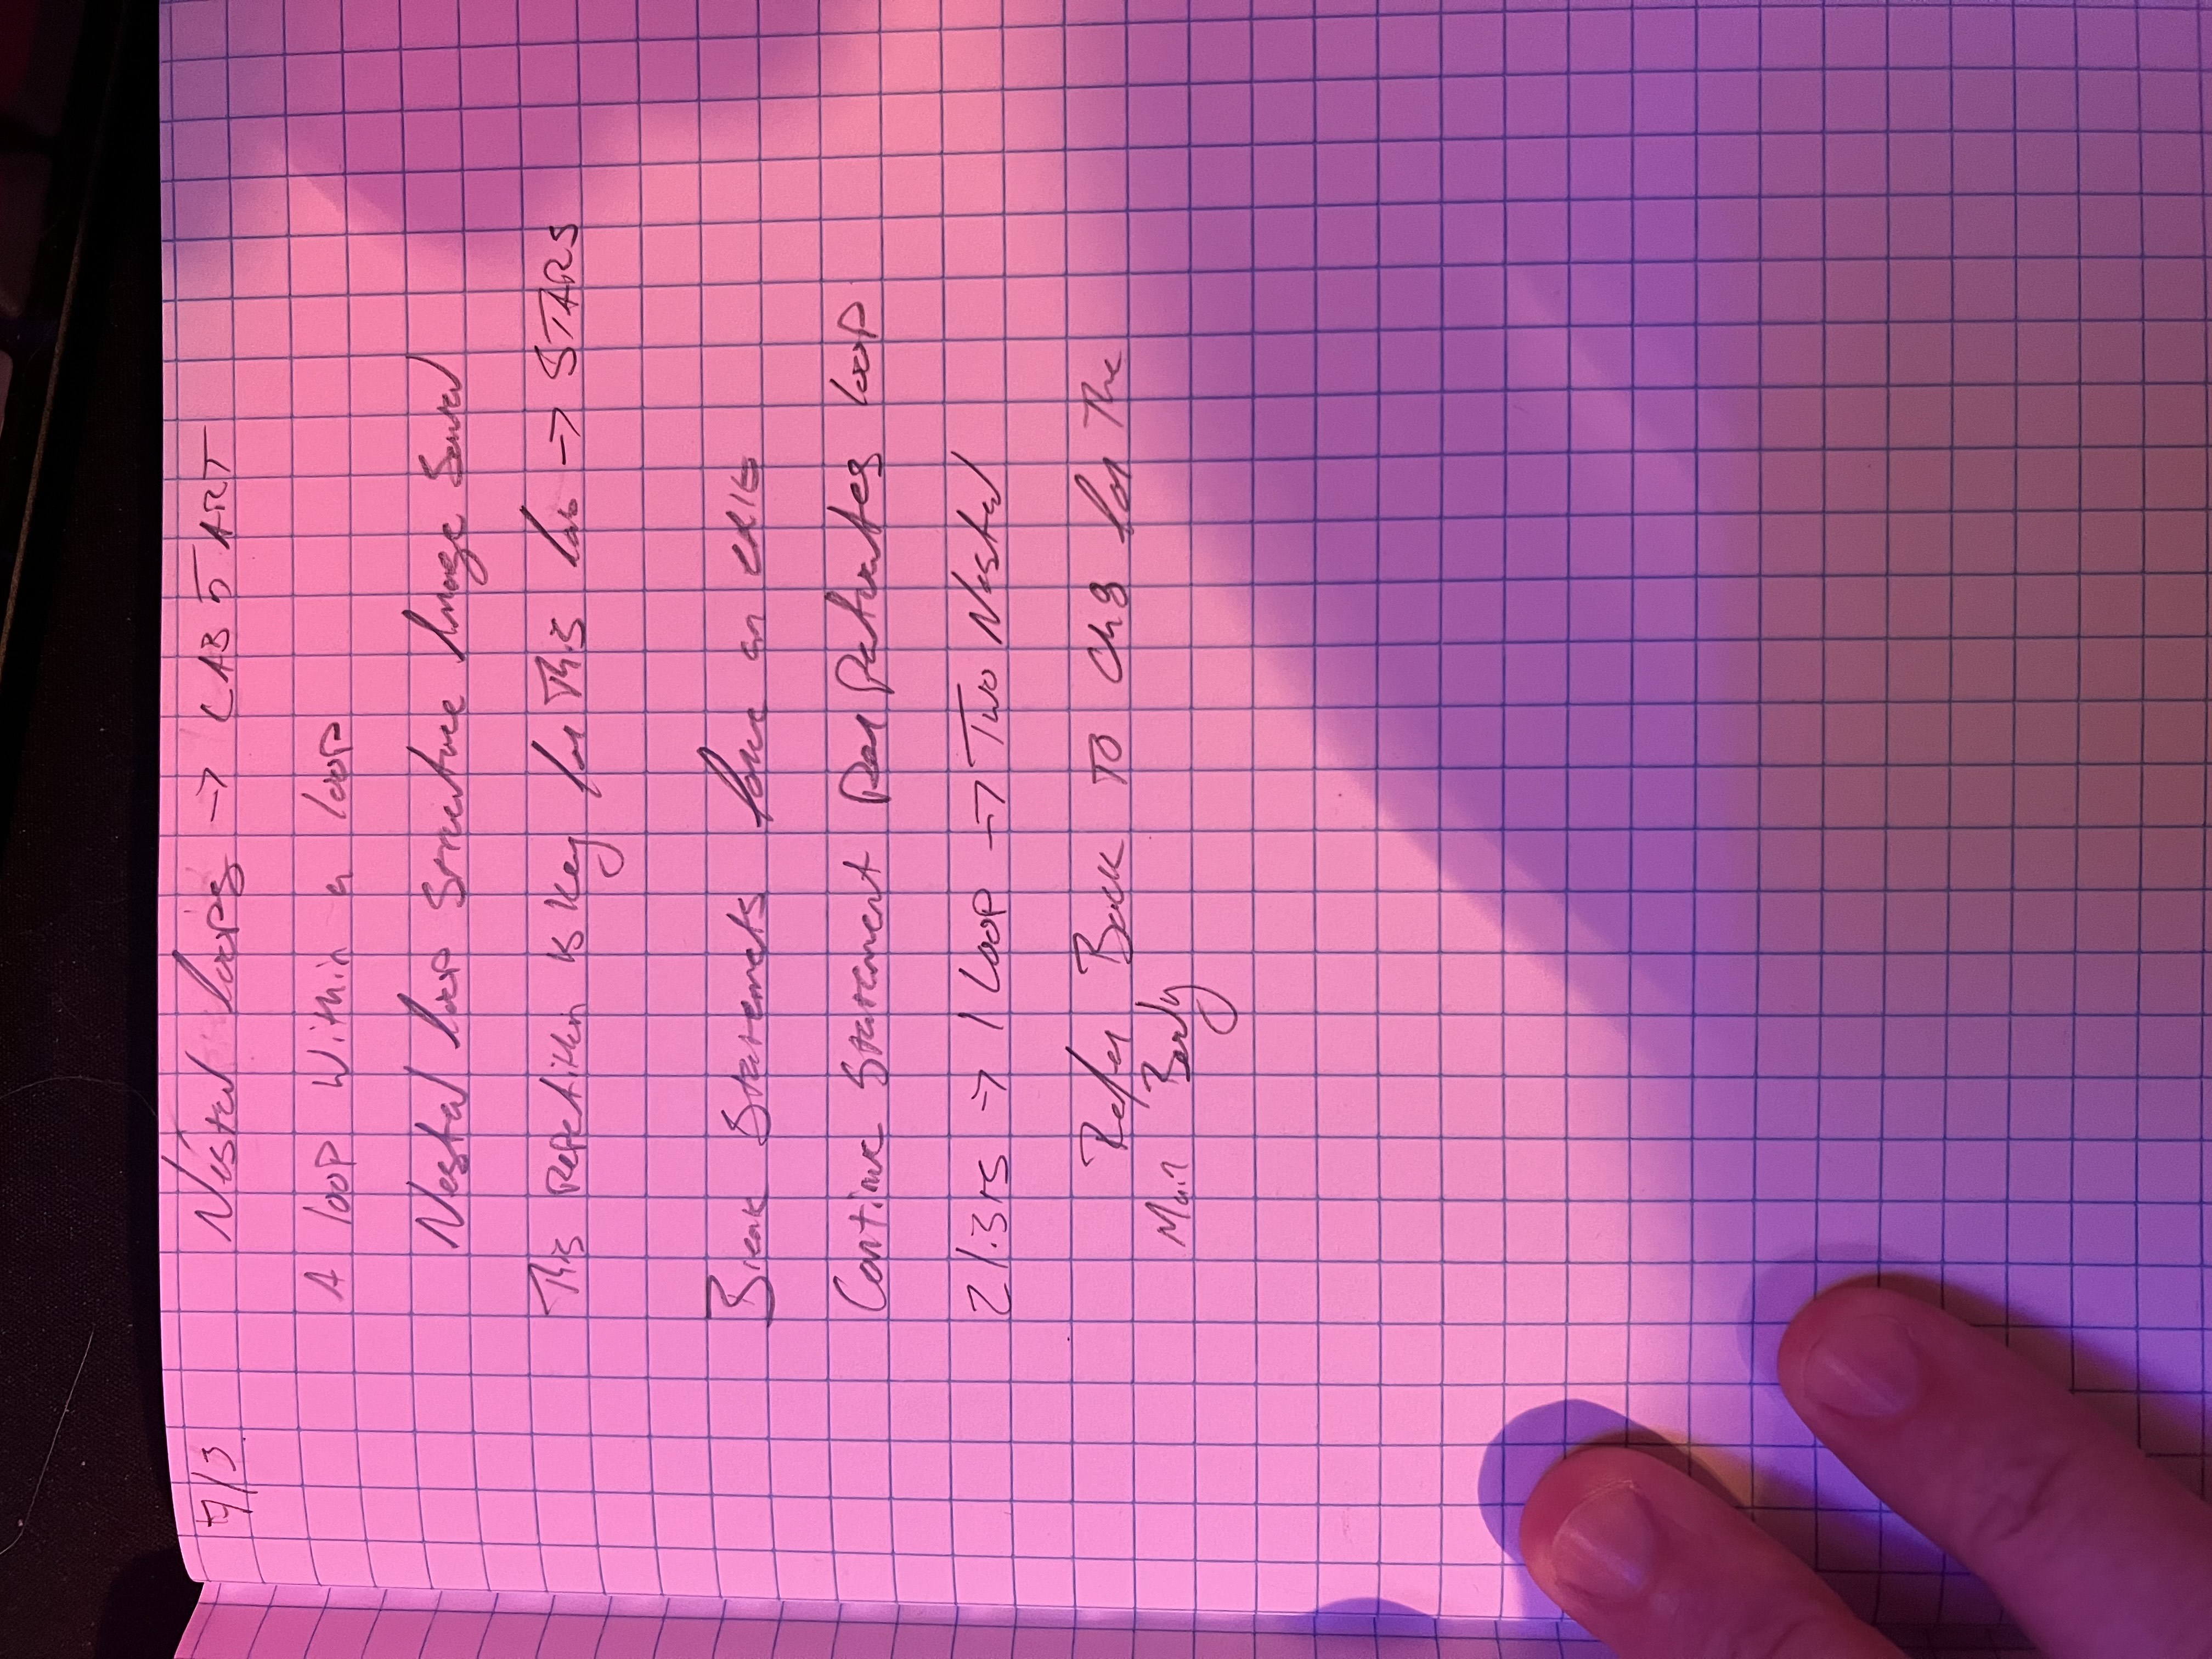 7/3 Nested loops → LAB 5 ART
A loop Within a loop
Nested loop Structure Image Saved
This Repetition is key for This lab → STARS
Break Statements force an exit
Continue Statement Perpetuates loop
2 lists → 1 Loop → Two Nested
Refer Back TO Ch 8 for The
Main Body